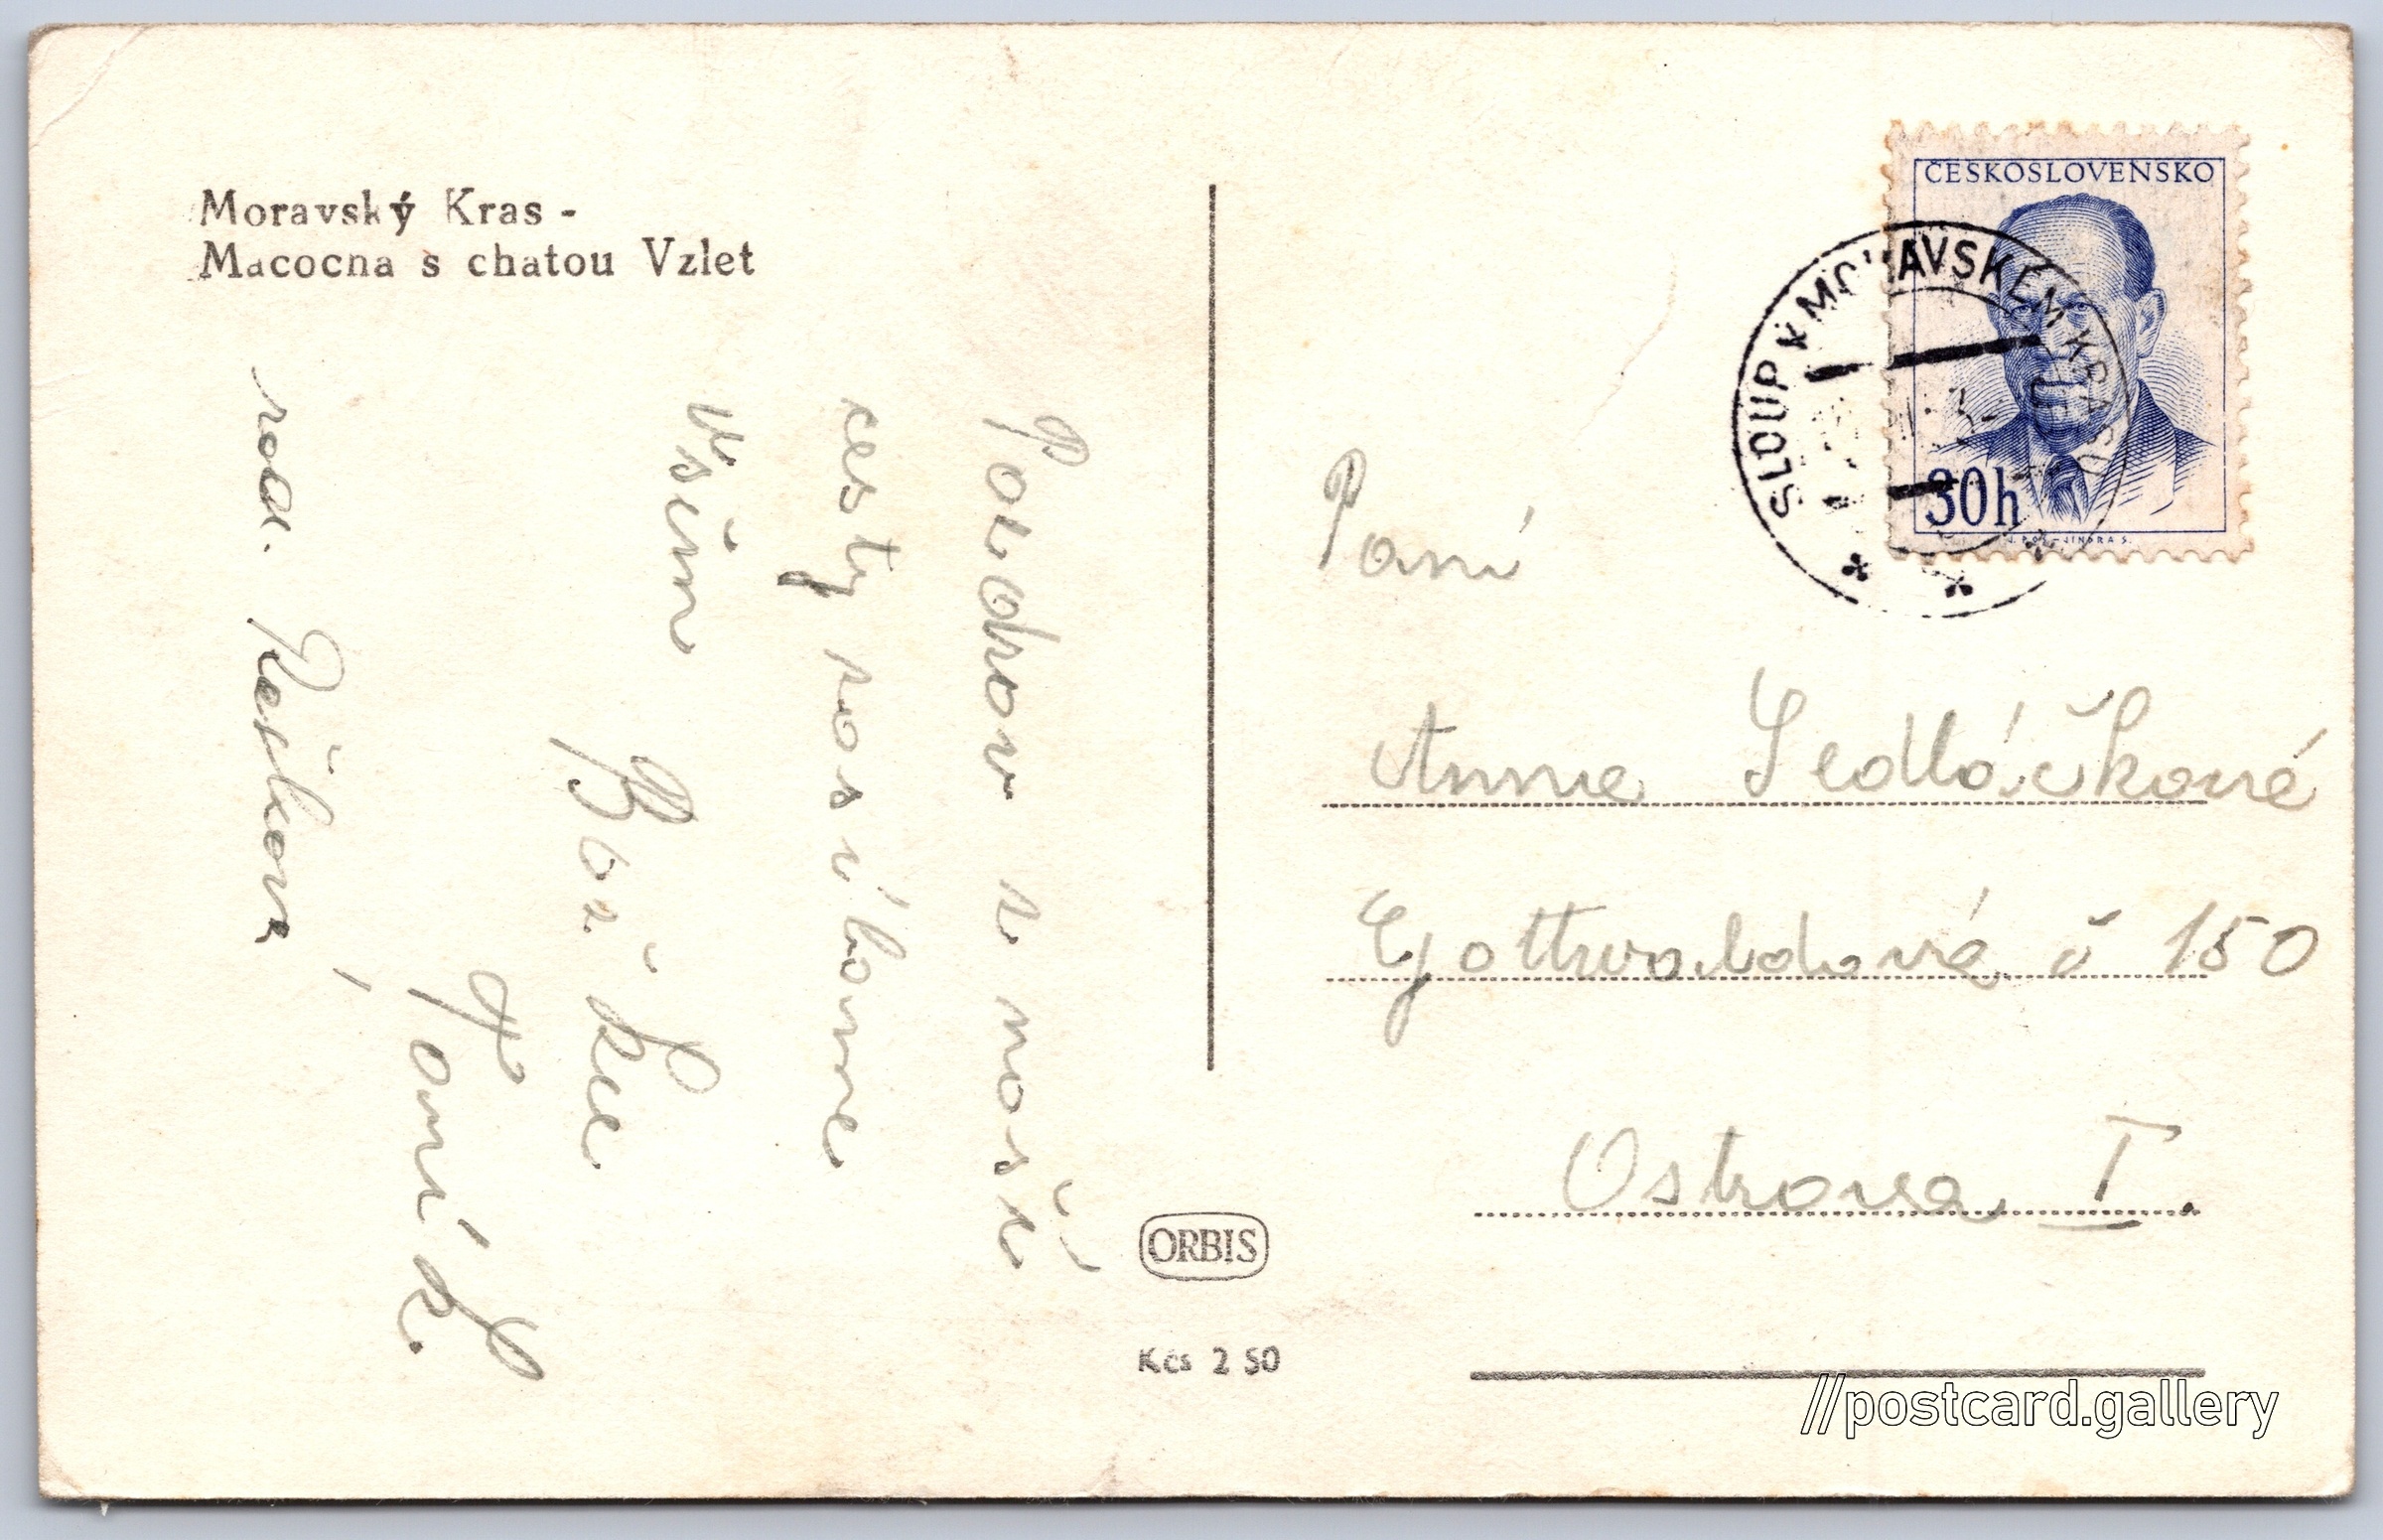 Moravský Kras -
Macocna s chatou Vzlet
Pozdrav z naší
cesty zasíláme
všem
Bož ka
Toník
rod. Raškovi
ORBIS
Kčs 2 50
ČESKOSLOVENSKO
30h
JINDRA S.
SLOUP V MORAVSKÉM KRASU
Paní
Anna Sedláčková
Gottwaldová č 150
Ostrava I.
//postcard.gallery